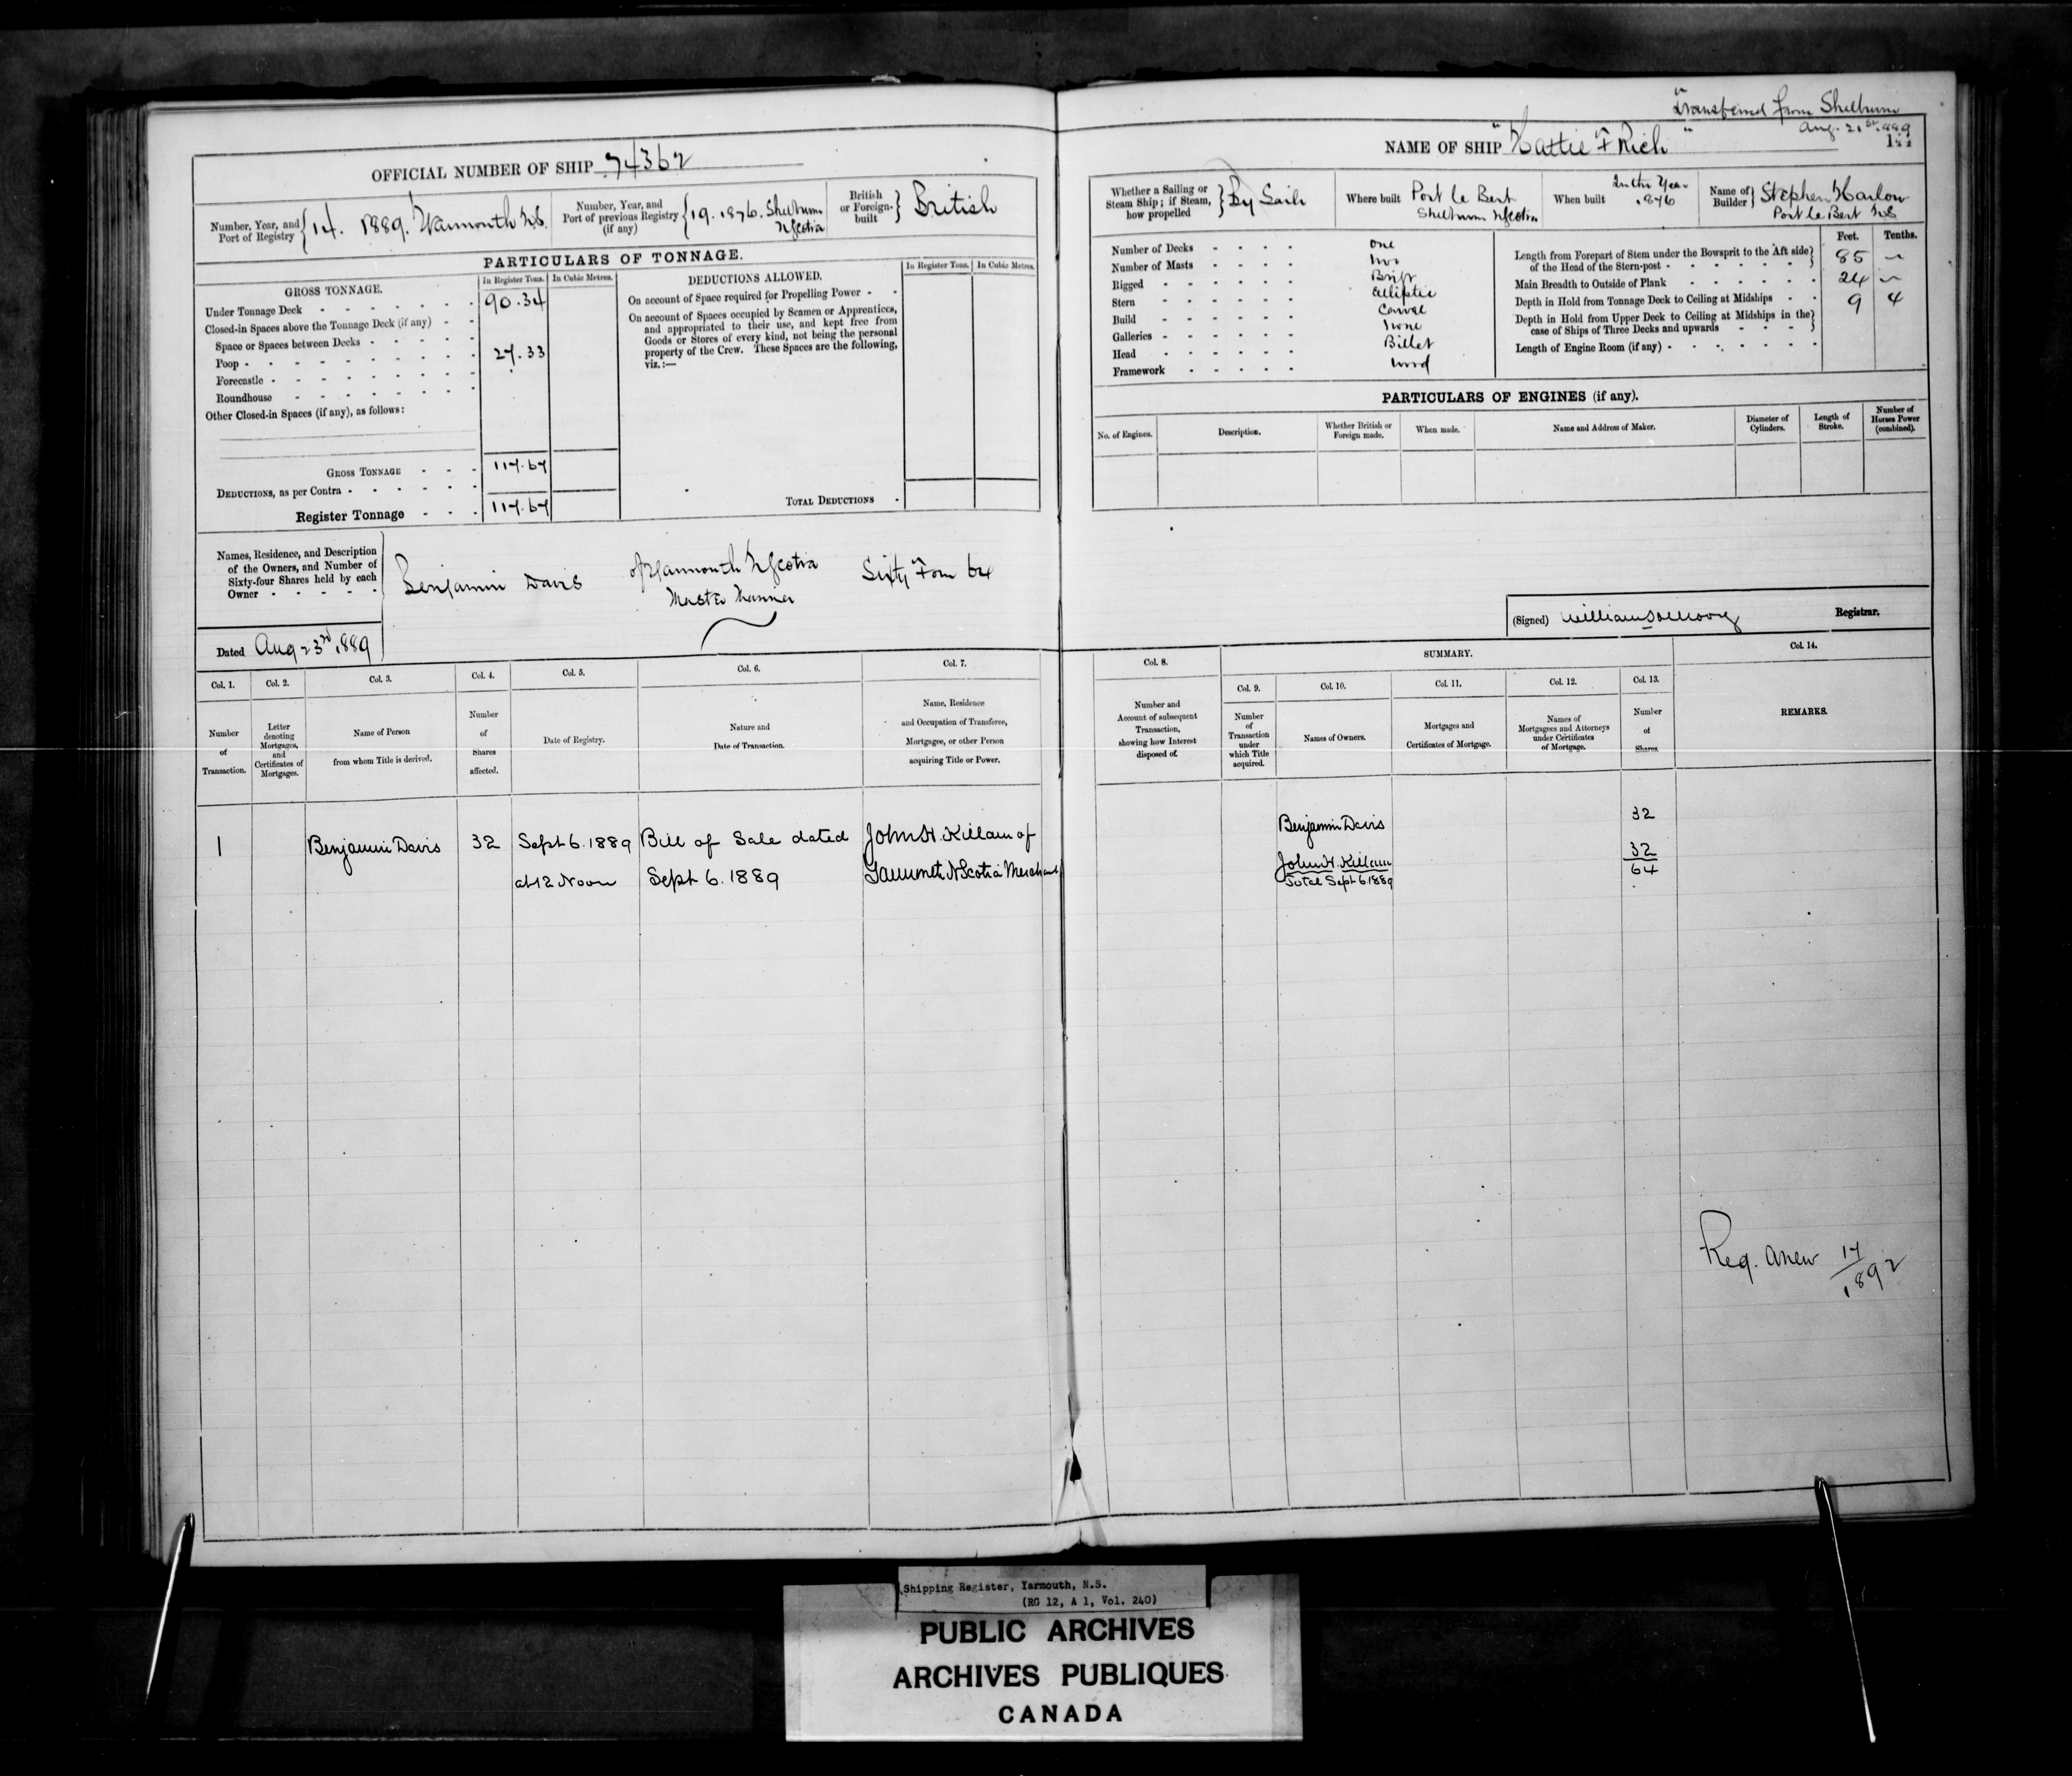 Transferred from Shelburne
Aug. 21st 1889
OFFICIAL NUMBER OF SHIP 74362
NAME OF SHIP "Hattie F Rich"
Number, Year, and Port of Registry { 14. 1889. Yarmouth N.S.
Number, Year, and Port of previous Registry (if any) { 19. 1876. Shelburne N Scotia
British or Foreign-built } British
PARTICULARS OF TONNAGE.
GROSS TONNAGE.
In Register Tons. In Cubic Metres.
Under Tonnage Deck - - - - 90.34
Closed-in Spaces above the Tonnage Deck (if any) - -
Space or Spaces between Decks - - - -
Poop - - - - - - - 27.33
Forecastle - - - - - -
Roundhouse - - - - - -
Other Closed-in Spaces (if any), as follows:
GROSS TONNAGE - - - 117.67
DEDUCTIONS, as per Contra - - - - -
Register Tonnage - - - 117.67
DEDUCTIONS ALLOWED.
In Register Tons. In Cubic Metres.
On account of Space required for Propelling Power - -
On account of Spaces occupied by Seamen or Apprentices,
and appropriated to their use, and kept free from
Goods or Stores of every kind, not being the personal
property of the Crew. These Spaces are the following,
viz.:—
TOTAL DEDUCTIONS -
Names, Residence, and Description
of the Owners, and Number of
Sixty-four Shares held by each
Owner - - - - -
Benjamin Davis of Yarmouth N Scotia Sixty Four 64
Master Mariner
Dated Aug 23rd 1889
Whether a Sailing or Steam Ship; if Steam, how propelled } By Sails
Where built Port Le Bert Shelburne N Scotia
When built In the Year 1876
Name of Builder } Stephen Harlow Port Le Bert N S
Number of Decks - - - - One
Number of Masts - - - - Two
Rigged - - - - - Brigt
Stern - - - - - Elliptic
Build - - - - - Carvel
Galleries - - - - - None
Head - - - - - Billet
Framework - - - - Wood
Feet. Tenths.
Length from Forepart of Stem under the Bowsprit to the Aft side
of the Head of the Stern-post - - - - - - 85 —
Main Breadth to Outside of Plank - - - - - - 24 —
Depth in Hold from Tonnage Deck to Ceiling at Midships - - 9 4
Depth in Hold from Upper Deck to Ceiling at Midships in the
case of Ships of Three Decks and upwards - - - -
Length of Engine Room (if any) - - - - - -
PARTICULARS OF ENGINES (if any).
No. of Engines. Description. Whether British or Foreign made. When made. Name and Address of Maker. Diameter of Cylinders. Length of Stroke. Number of Horses Power (combined).
(Signed) Registrar.
Col. 1. Col. 2. Col. 3. Col. 4. Col. 5. Col. 6. Col. 7.
Number of Transaction.
Letter denoting Mortgages, and Certificates of Mortgages.
Name of Person from whom Title is derived.
Number of Shares affected.
Date of Registry.
Nature and Date of Transaction.
Name, Residence and Occupation of Transferee, Mortgagee, or other Person acquiring Title or Power.
1 Benjamin Davis 32 Sept 6. 1889 Bill of Sale dated John H. Killam of
at 12 Noon Sept 6. 1889 Yarmouth N Scotia Merchant
Col. 8. SUMMARY. Col. 14.
Col. 9. Col. 10. Col. 11. Col. 12. Col. 13.
Number and Account of subsequent Transaction, showing how Interest disposed of.
Number of Transaction under which Title acquired.
Names of Owners.
Mortgages and Certificates of Mortgage.
Names of Mortgagees and Attorneys under Certificates of Mortgage.
Number of Shares.
REMARKS.
Benjamin Davis 32
John H. Killam 32
Total Sept 6 1889 64
Reg. anew 17/1892
Shipping Register, Yarmouth, N.S.
(RG 12, A 1, Vol. 240)
PUBLIC ARCHIVES
ARCHIVES PUBLIQUES
CANADA